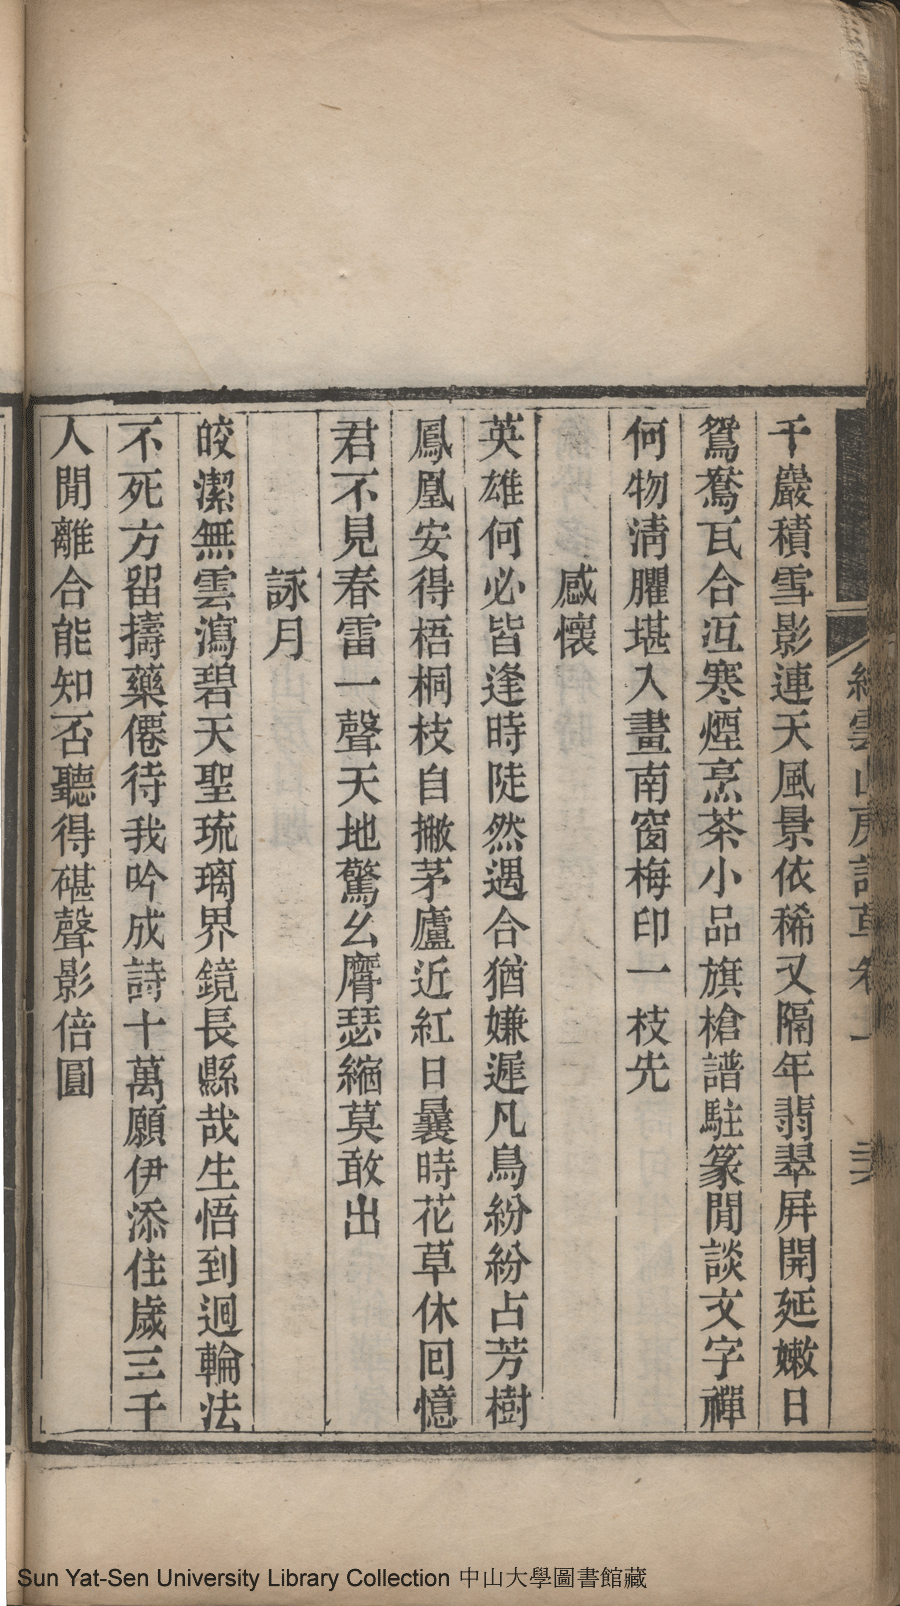 雲山房詩草卷一
千巖積雪影連天風景依稀又隔年翡翠屛開延嫩日
鴛鴦瓦合冱寒煙烹茶小品旗槍譜駐篆閒談文字禪
何物淸臞堪入畫南窗梅印一枝先
感懷
英雄何必皆逢時陡然遇合猶嫌遲凡鳥紛紛占芳樹
鳳凰安得梧桐枝自撇茅廬近紅日曩時花草休回憶
君不見春雷一聲天地驚幺麿瑟縮莫敢出
詠月
皎潔無雲瀉碧天聖琉璃界鏡長縣哉生悟到迴輪法
不死方留擣藥僊待我吟成詩十萬願伊添住歲三千
人閒離合能知否聽得碪聲影倍圓
Sun Yat-Sen University Library Collection 中山大學圖書館藏